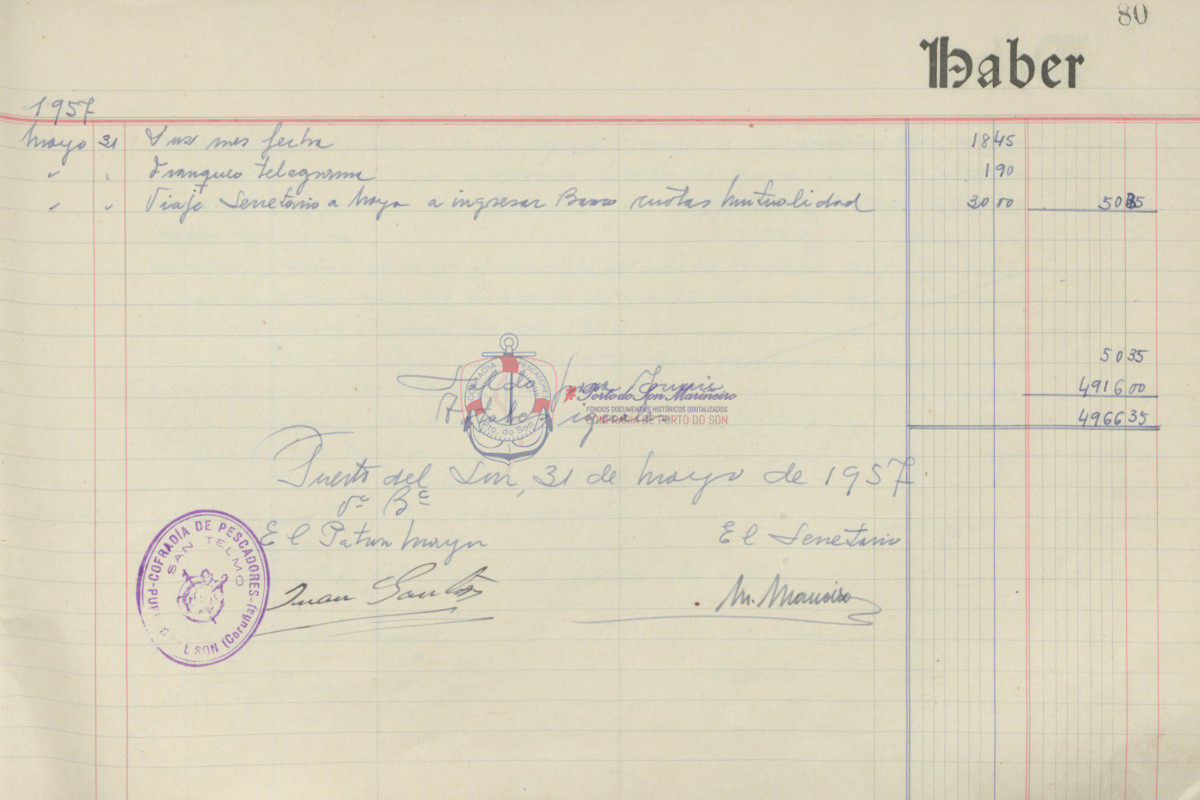 80
Haber
1957
Mayo 31 Luz mes fecha 18 45
" " Franqueo telegrama 1 90
" " Viaje Secretario a Noya a ingresar Banco cuotas Mutualidad 30 00 50 35
50 35
4916 00
4966 35
Porto do Son Mariñeiro
FONDOS DOCUMENTAIS HISTÓRICOS DIXITALIZADOS
CONFRARÍA DE PORTO DO SON
Puerto del Son, 31 de Mayo de 1957
Vº Bº
El Patron Mayor El Secretario
COFRADÍA DE PESCADORES
SAN TELMO
SON (Coruña)
Juan Santos M. Marineiro